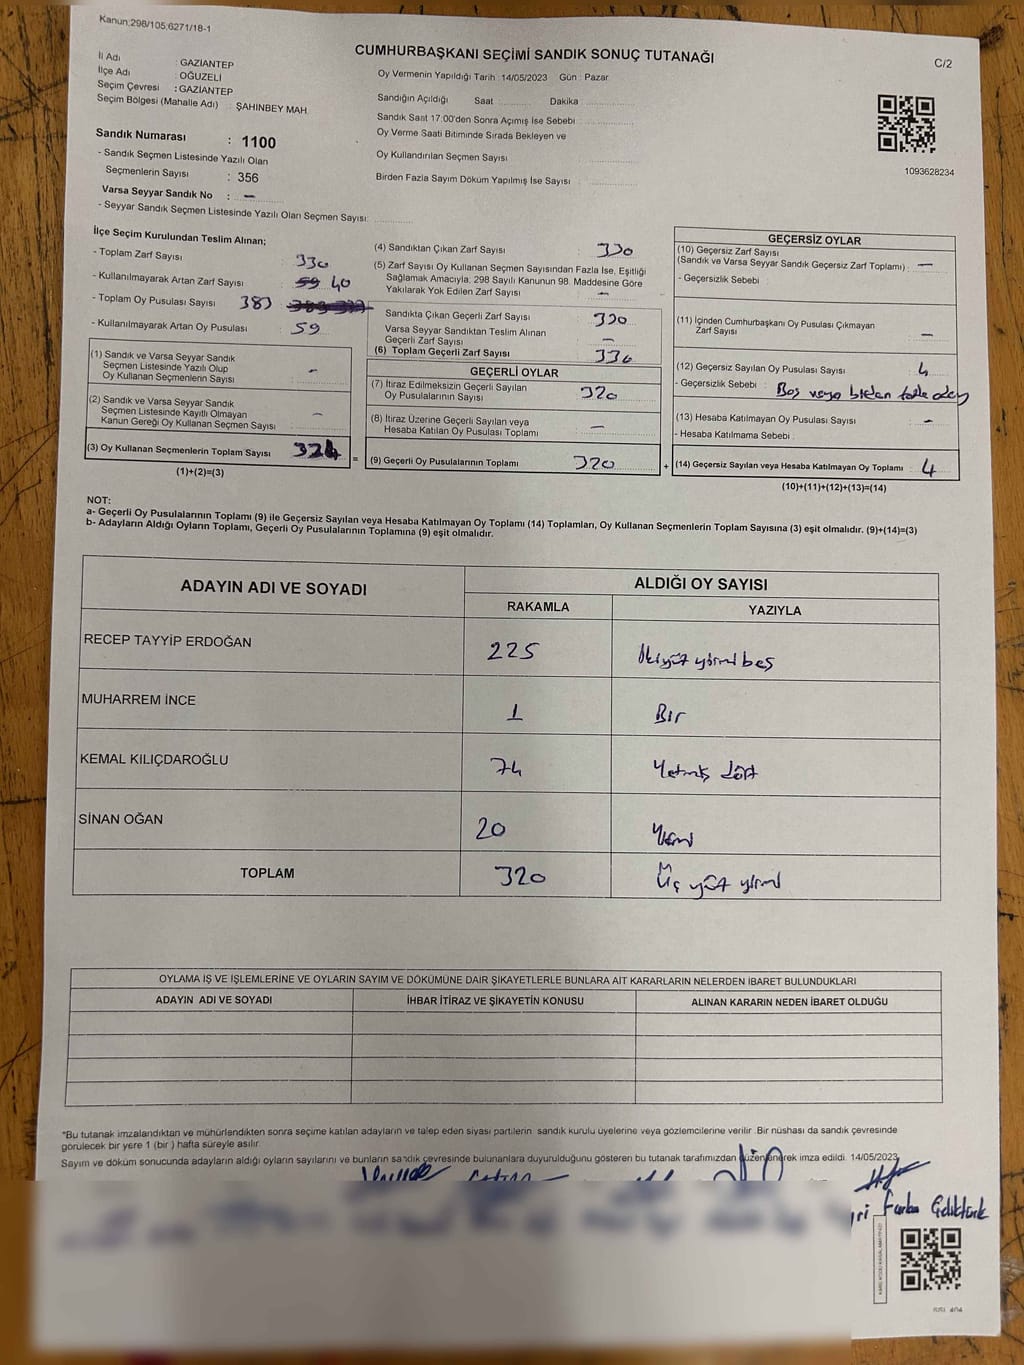 Kanun:298/105;6271/18-1
CUMHURBAŞKANI SEÇİMİ SANDIK SONUÇ TUTANAĞI
C/2
İl Adı : GAZİANTEP
İlçe Adı : OĞUZELİ
Seçim Çevresi : GAZİANTEP
Seçim Bölgesi (Mahalle Adı) : ŞAHİNBEY MAH.
Sandık Numarası : 1100
- Sandık Seçmen Listesinde Yazılı Olan
Seçmenlerin Sayısı : 356
Varsa Seyyar Sandık No : –
- Seyyar Sandık Seçmen Listesinde Yazılı Olan Seçmen Sayısı:
Oy Vermenin Yapıldığı Tarih : 14/05/2023 Gün : Pazar
Sandığın Açıldığı Saat Dakika
Sandık Saat 17.00'den Sonra Açımış İse Sebebi :
Oy Verme Saati Bitiminde Sırada Bekleyen ve
Oy Kullandırılan Seçmen Sayısı
Birden Fazla Sayım Döküm Yapılmış İse Sayısı :
1093628234
İlçe Seçim Kurulundan Teslim Alınan;
- Toplam Zarf Sayısı : 330
- Kullanılmayarak Artan Zarf Sayısı : 59 40
- Toplam Oy Pusulası Sayısı 383
- Kullanılmayarak Artan Oy Pusulası : 59
(1) Sandık ve Varsa Seyyar Sandık
Seçmen Listesinde Yazılı Olup
Oy Kullanan Seçmenlerin Sayısı : –
(2) Sandık ve Varsa Seyyar Sandık
Seçmen Listesinde Kayıtlı Olmayan
Kanun Gereği Oy Kullanan Seçmen Sayısı : –
(3) Oy Kullanan Seçmenlerin Toplam Sayısı : 324 =
(1)+(2)=(3)
(4) Sandıktan Çıkan Zarf Sayısı : 330
(5) Zarf Sayısı Oy Kullanan Seçmen Sayısından Fazla İse, Eşitliği
Sağlamak Amacıyla; 298 Sayılı Kanunun 98. Maddesine Göre
Yakılarak Yok Edilen Zarf Sayısı : –
Sandıkta Çıkan Geçerli Zarf Sayısı : 320
Varsa Seyyar Sandıktan Teslim Alınan
Geçerli Zarf Sayısı : –
(6) Toplam Geçerli Zarf Sayısı : 336
GEÇERLİ OYLAR
(7) İtiraz Edilmeksizin Geçerli Sayılan
Oy Pusulalarının Sayısı : 320
(8) İtiraz Üzerine Geçerli Sayılan veya
Hesaba Katılan Oy Pusulası Toplamı : –
(9) Geçerli Oy Pusulalarının Toplamı : 320 +
GEÇERSİZ OYLAR
(10) Geçersiz Zarf Sayısı
(Sandık ve Varsa Seyyar Sandık Geçersiz Zarf Toplamı) : –
- Geçersizlik Sebebi :
(11) İçinden Cumhurbaşkanı Oy Pusulası Çıkmayan
Zarf Sayısı : –
(12) Geçersiz Sayılan Oy Pusulası Sayısı : 4
- Geçersizlik Sebebi : Boş veya birden fazla oy
(13) Hesaba Katılmayan Oy Pusulası Sayısı : –
- Hesaba Katılmama Sebebi :
(14) Geçersiz Sayılan veya Hesaba Katılmayan Oy Toplamı : 4
(10)+(11)+(12)+(13)=(14)
NOT:
a- Geçerli Oy Pusulalarının Toplamı (9) ile Geçersiz Sayılan veya Hesaba Katılmayan Oy Toplamı (14) Toplamları, Oy Kullanan Seçmenlerin Toplam Sayısına (3) eşit olmalıdır. (9)+(14)=(3)
b- Adayların Aldığı Oyların Toplamı, Geçerli Oy Pusulalarının Toplamına (9) eşit olmalıdır.
ADAYIN ADI VE SOYADI ALDIĞI OY SAYISI
RAKAMLA YAZIYLA
RECEP TAYYİP ERDOĞAN 225 İkiyüz yirmi beş
MUHARREM İNCE 1 Bir
KEMAL KILIÇDAROĞLU 74 Yetmiş dört
SİNAN OĞAN 20 Yirmi
TOPLAM 320 Üç yüz yirmi
OYLAMA İŞ VE İŞLEMLERİNE VE OYLARIN SAYIM VE DÖKÜMÜNE DAİR ŞİKAYETLERLE BUNLARA AİT KARARLARIN NELERDEN İBARET BULUNDUKLARI
ADAYIN ADI VE SOYADI İHBAR İTİRAZ VE ŞİKAYETİN KONUSU ALINAN KARARIN NEDEN İBARET OLDUĞU
*Bu tutanak imzalandıktan ve mühürlendikten sonra seçime katılan adayların ve talep eden siyasi partilerin sandık kurulu üyelerine veya gözlemcilerine verilir. Bir nüshası da sandık çevresinde
görülecek bir yere 1 (bir) hafta süreyle asılır.
Sayım ve döküm sonucunda adayların aldığı oyların sayılarını ve bunların sandık çevresinde bulunanlara duyurulduğunu gösteren bu tutanak tarafımızdan düzenlenerek imza edildi. 14/05/2023